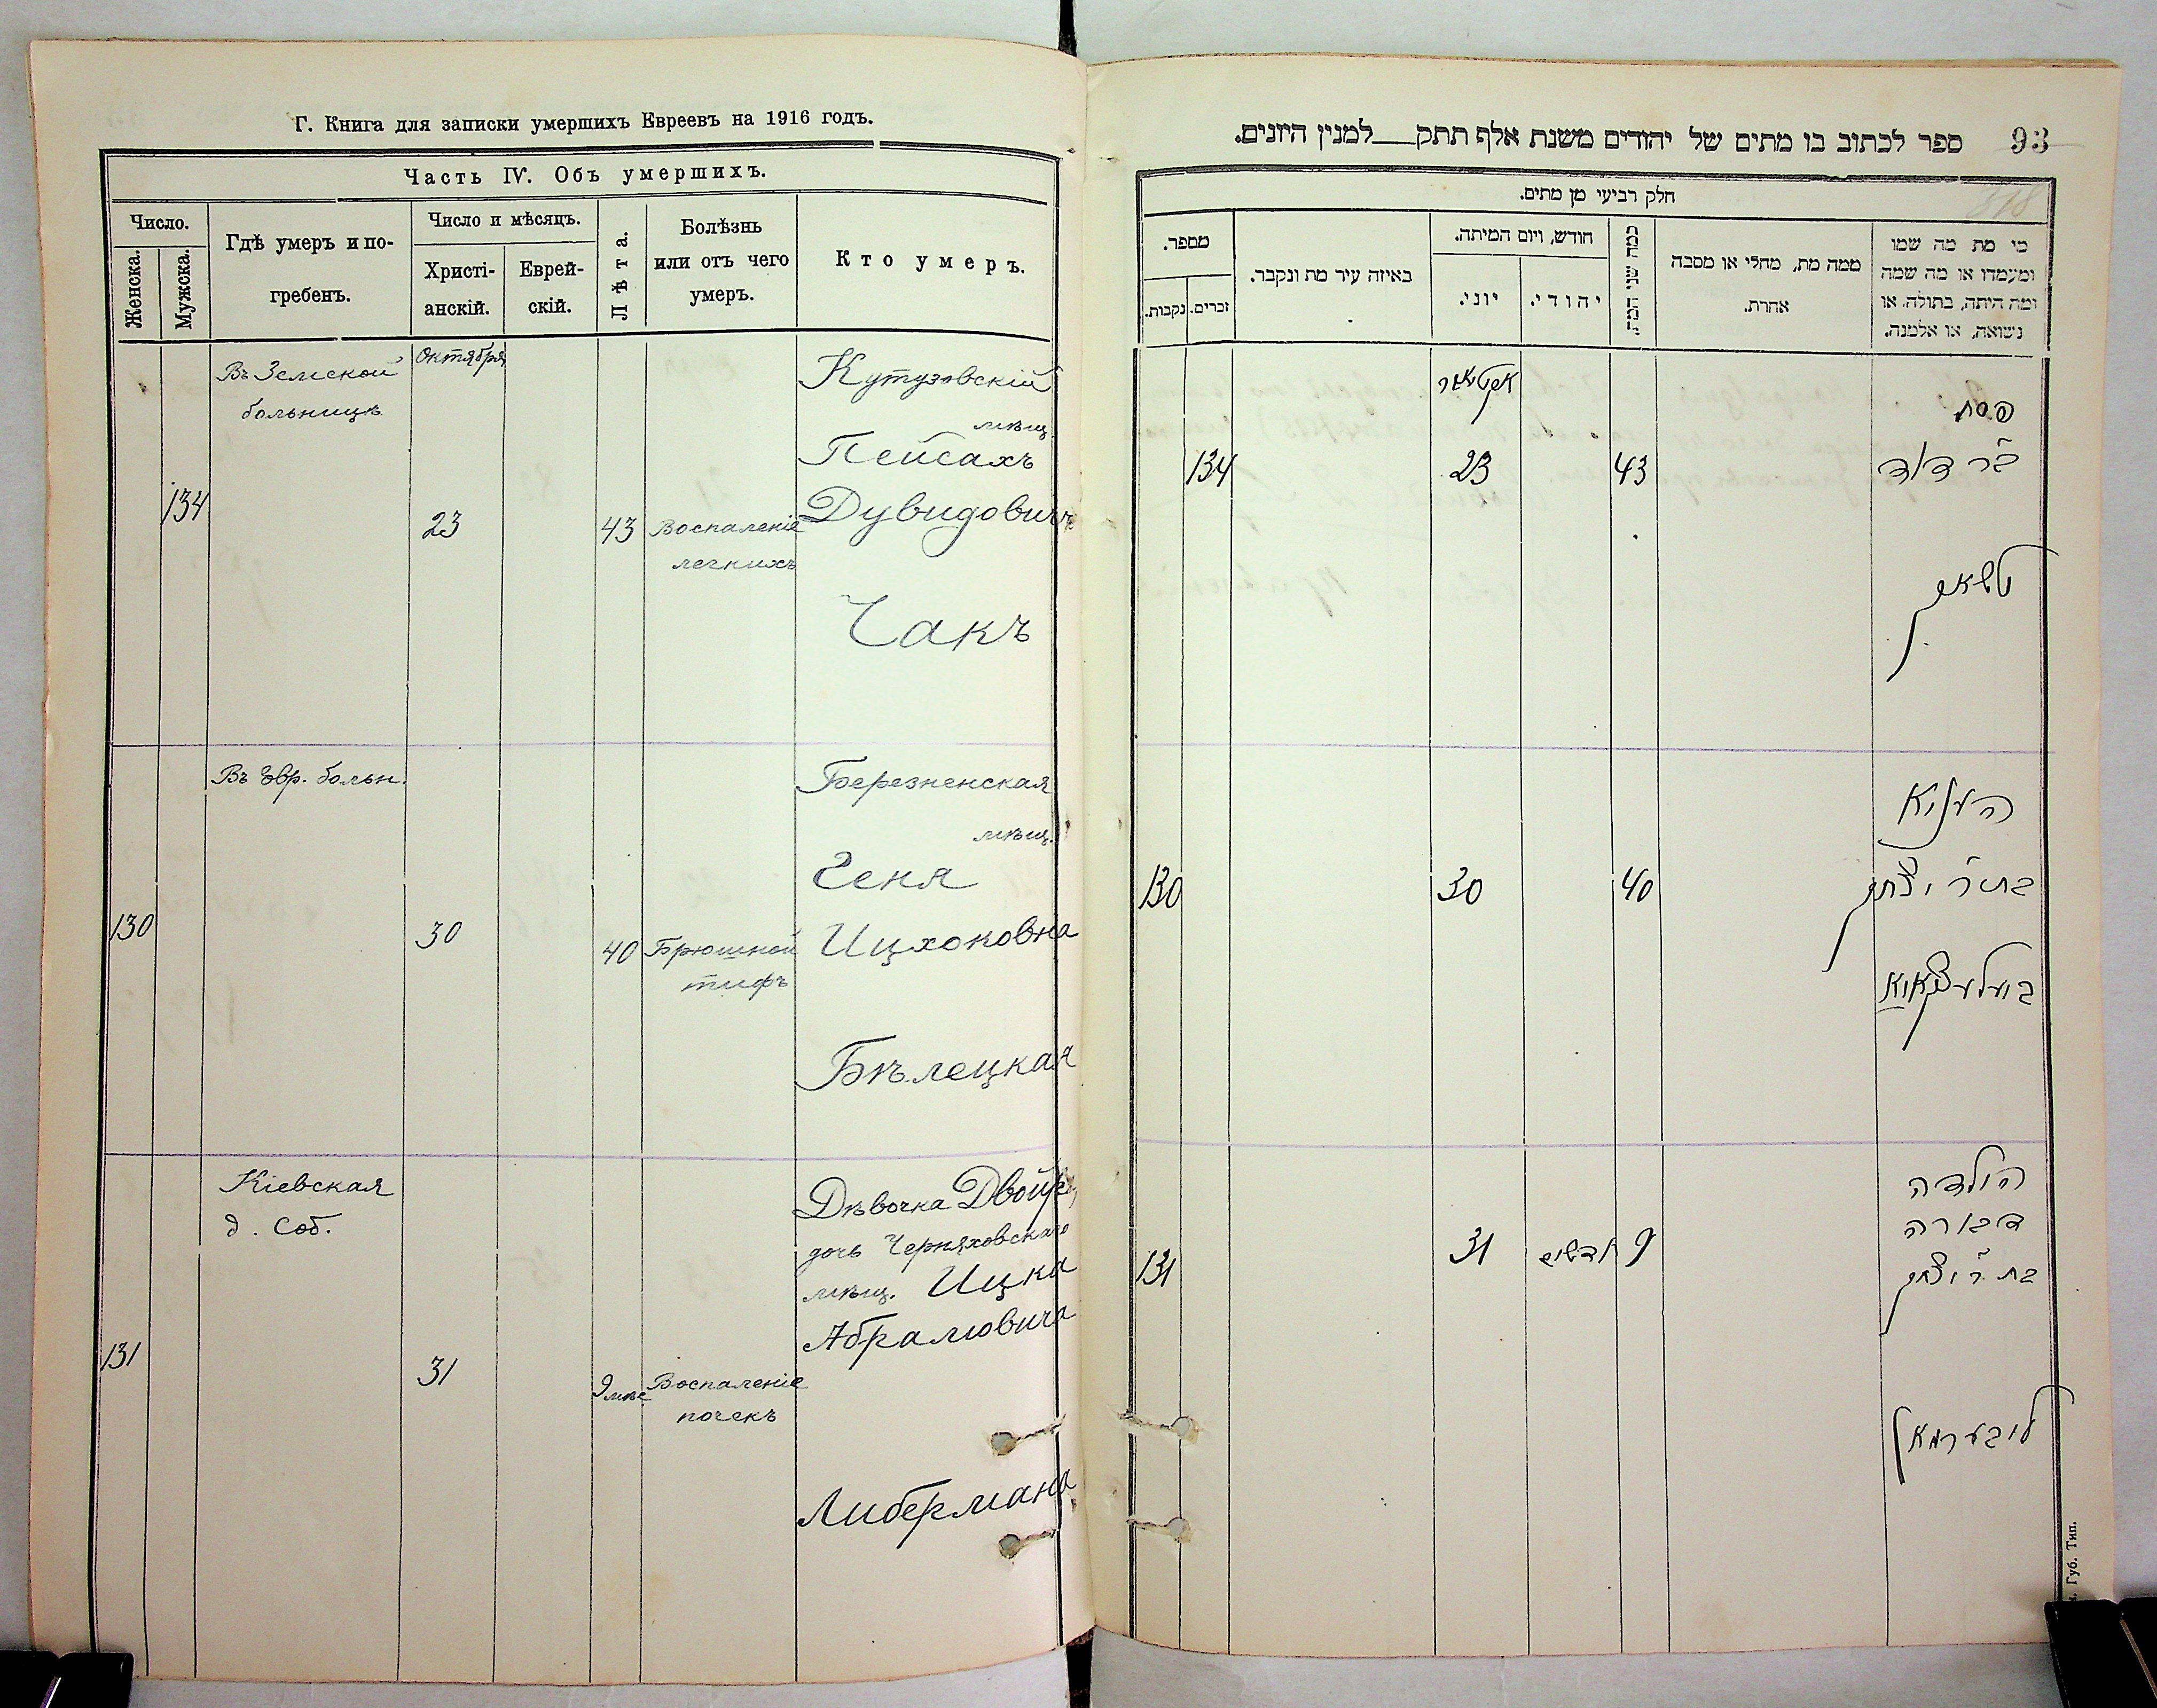 Г. Книга для записки умершихъ Евреевъ на 1916 годъ.
Часть IV. Объ умершихъ.
Число.
Женска.
Мужска.
Гдѣ умеръ и по-
гребенъ.
Число и мѣсяцъ.
Христі-
анскій.
Еврей-
скій.
Лѣта.
Болѣзнь
или отъ чего
умеръ.
Кто умеръ.
Въ Земской
больницѣ
Октября
134
23
43
Воспаленіе
легкихъ
Кутузовскій
мѣщ.
Пейсахъ
Дувидовичъ
Чакъ
Въ Евр. больн.
130
30
40
Брюшной
тифъ
Березненская
мѣщ.
Геня
Ицхоковна
Бѣлецкая
Кіевская
д. Соб.
131
31
9 мѣс
Воспаленіе
почекъ
Дѣвочка Двойра,
дочь Черняховскаго
мѣщ. Ицка
Абрамовича
Либермана
93
ספר לכתוב בו מתים של יהודים משנת אלף תתק למנין היונים.
חלק רביעי מן מתים.
מספר.
נקבות.
זכרים.
באיזה עיר מת ונקבר.
חודש, ויום המיתה.
יוני.
יהודי.
כמה שני המת.
ממה מת, מחלי או מסבה
אחרת.
מי מת מה שמו
ומעמדו או מה שמה
ומה היתה, בתולה, או
נשואה, או אלמנה.
134
23
43
פסח
ב״ר דוד
130
30
40
העניא
בת ר׳ יצחק
131
31
חדשים
9
הילדה
דבורה
בת ר׳ יצחק
ליבערמאן
Губ. Тип.